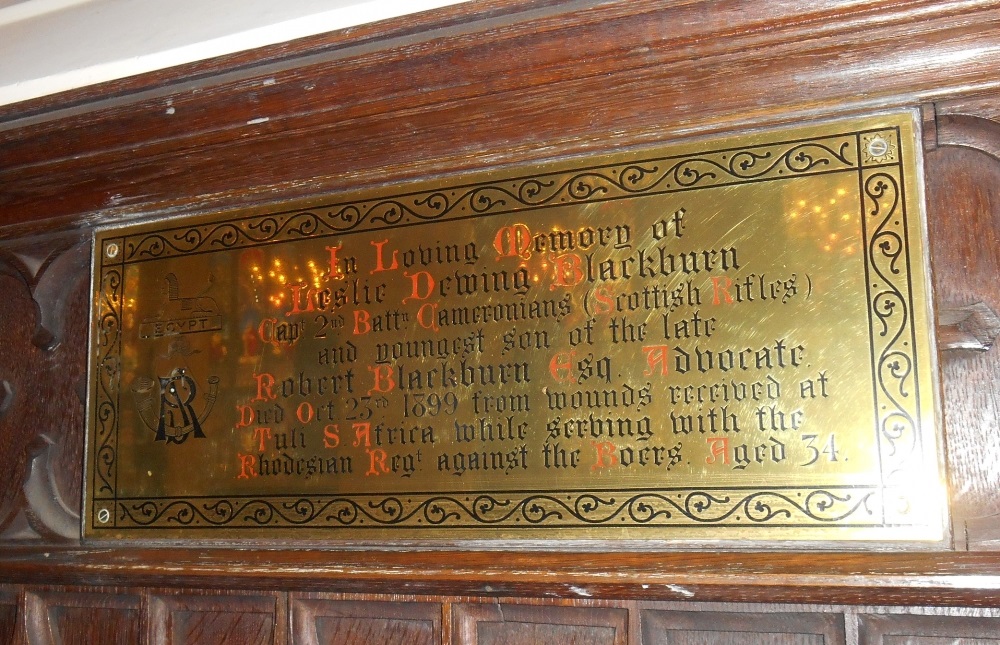 EGYPT
SR
In Loving Memory of
Leslie Dewing Blackburn
Capt 2nd Battn Cameronians (Scottish Rifles)
and youngest son of the late
Robert Blackburn Esq. Advocate.
Died Oct 23rd 1899 from wounds received at
Tuli S Africa while serving with the
Rhodesian Regt against the Boers. Aged 34.